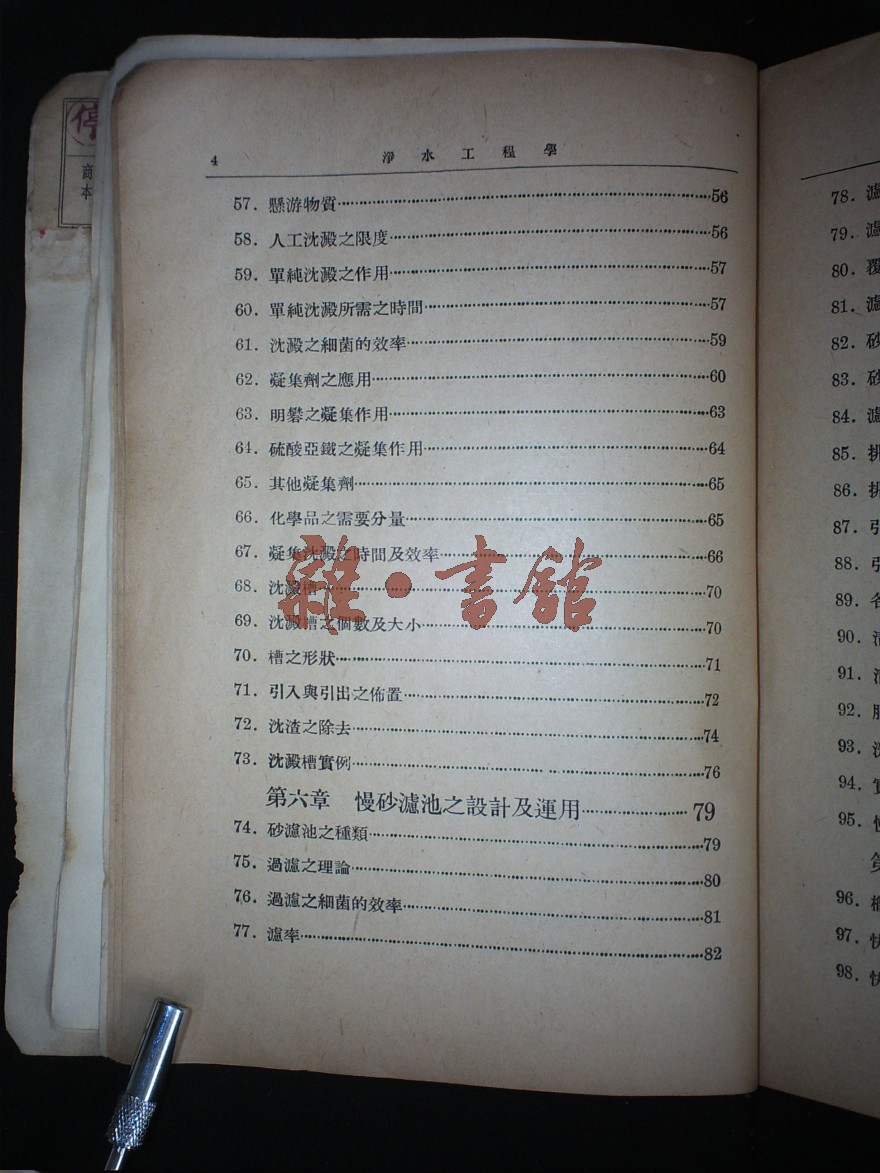 4 淨水工程學
57. 懸游物質……56
58. 人工沈澱之限度……56
59. 單純沈澱之作用……57
60. 單純沈澱所需之時間……57
61. 沈澱之細菌的效率……59
62. 凝集劑之應用……60
63. 明礬之凝集作用……63
64. 硫酸亞鐵之凝集作用……64
65. 其他凝集劑……65
66. 化學品之需要分量……65
67. 凝集沈澱之時間及效率……66
68. 沈澱槽……70
69. 沈澱槽之個數及大小……70
70. 槽之形狀……71
71. 引入與引出之佈置……72
72. 沈渣之除去……74
73. 沈澱槽實例……76
第六章 慢砂濾池之設計及運用……79
74. 砂濾池之種類……79
75. 過濾之理論……80
76. 過濾之細菌的效率……81
77. 濾率……82
雜·書館
停
商
本
78. 濾
79. 濾
80. 覆
81. 濾
82. 砂
83. 砂
84. 濾
85. 排
86. 排
87. 引
88. 引
89. 各
90. 清
91.
92.
93. 洗
94. 實
95. 慢
第
96.
97. 快
98. 快